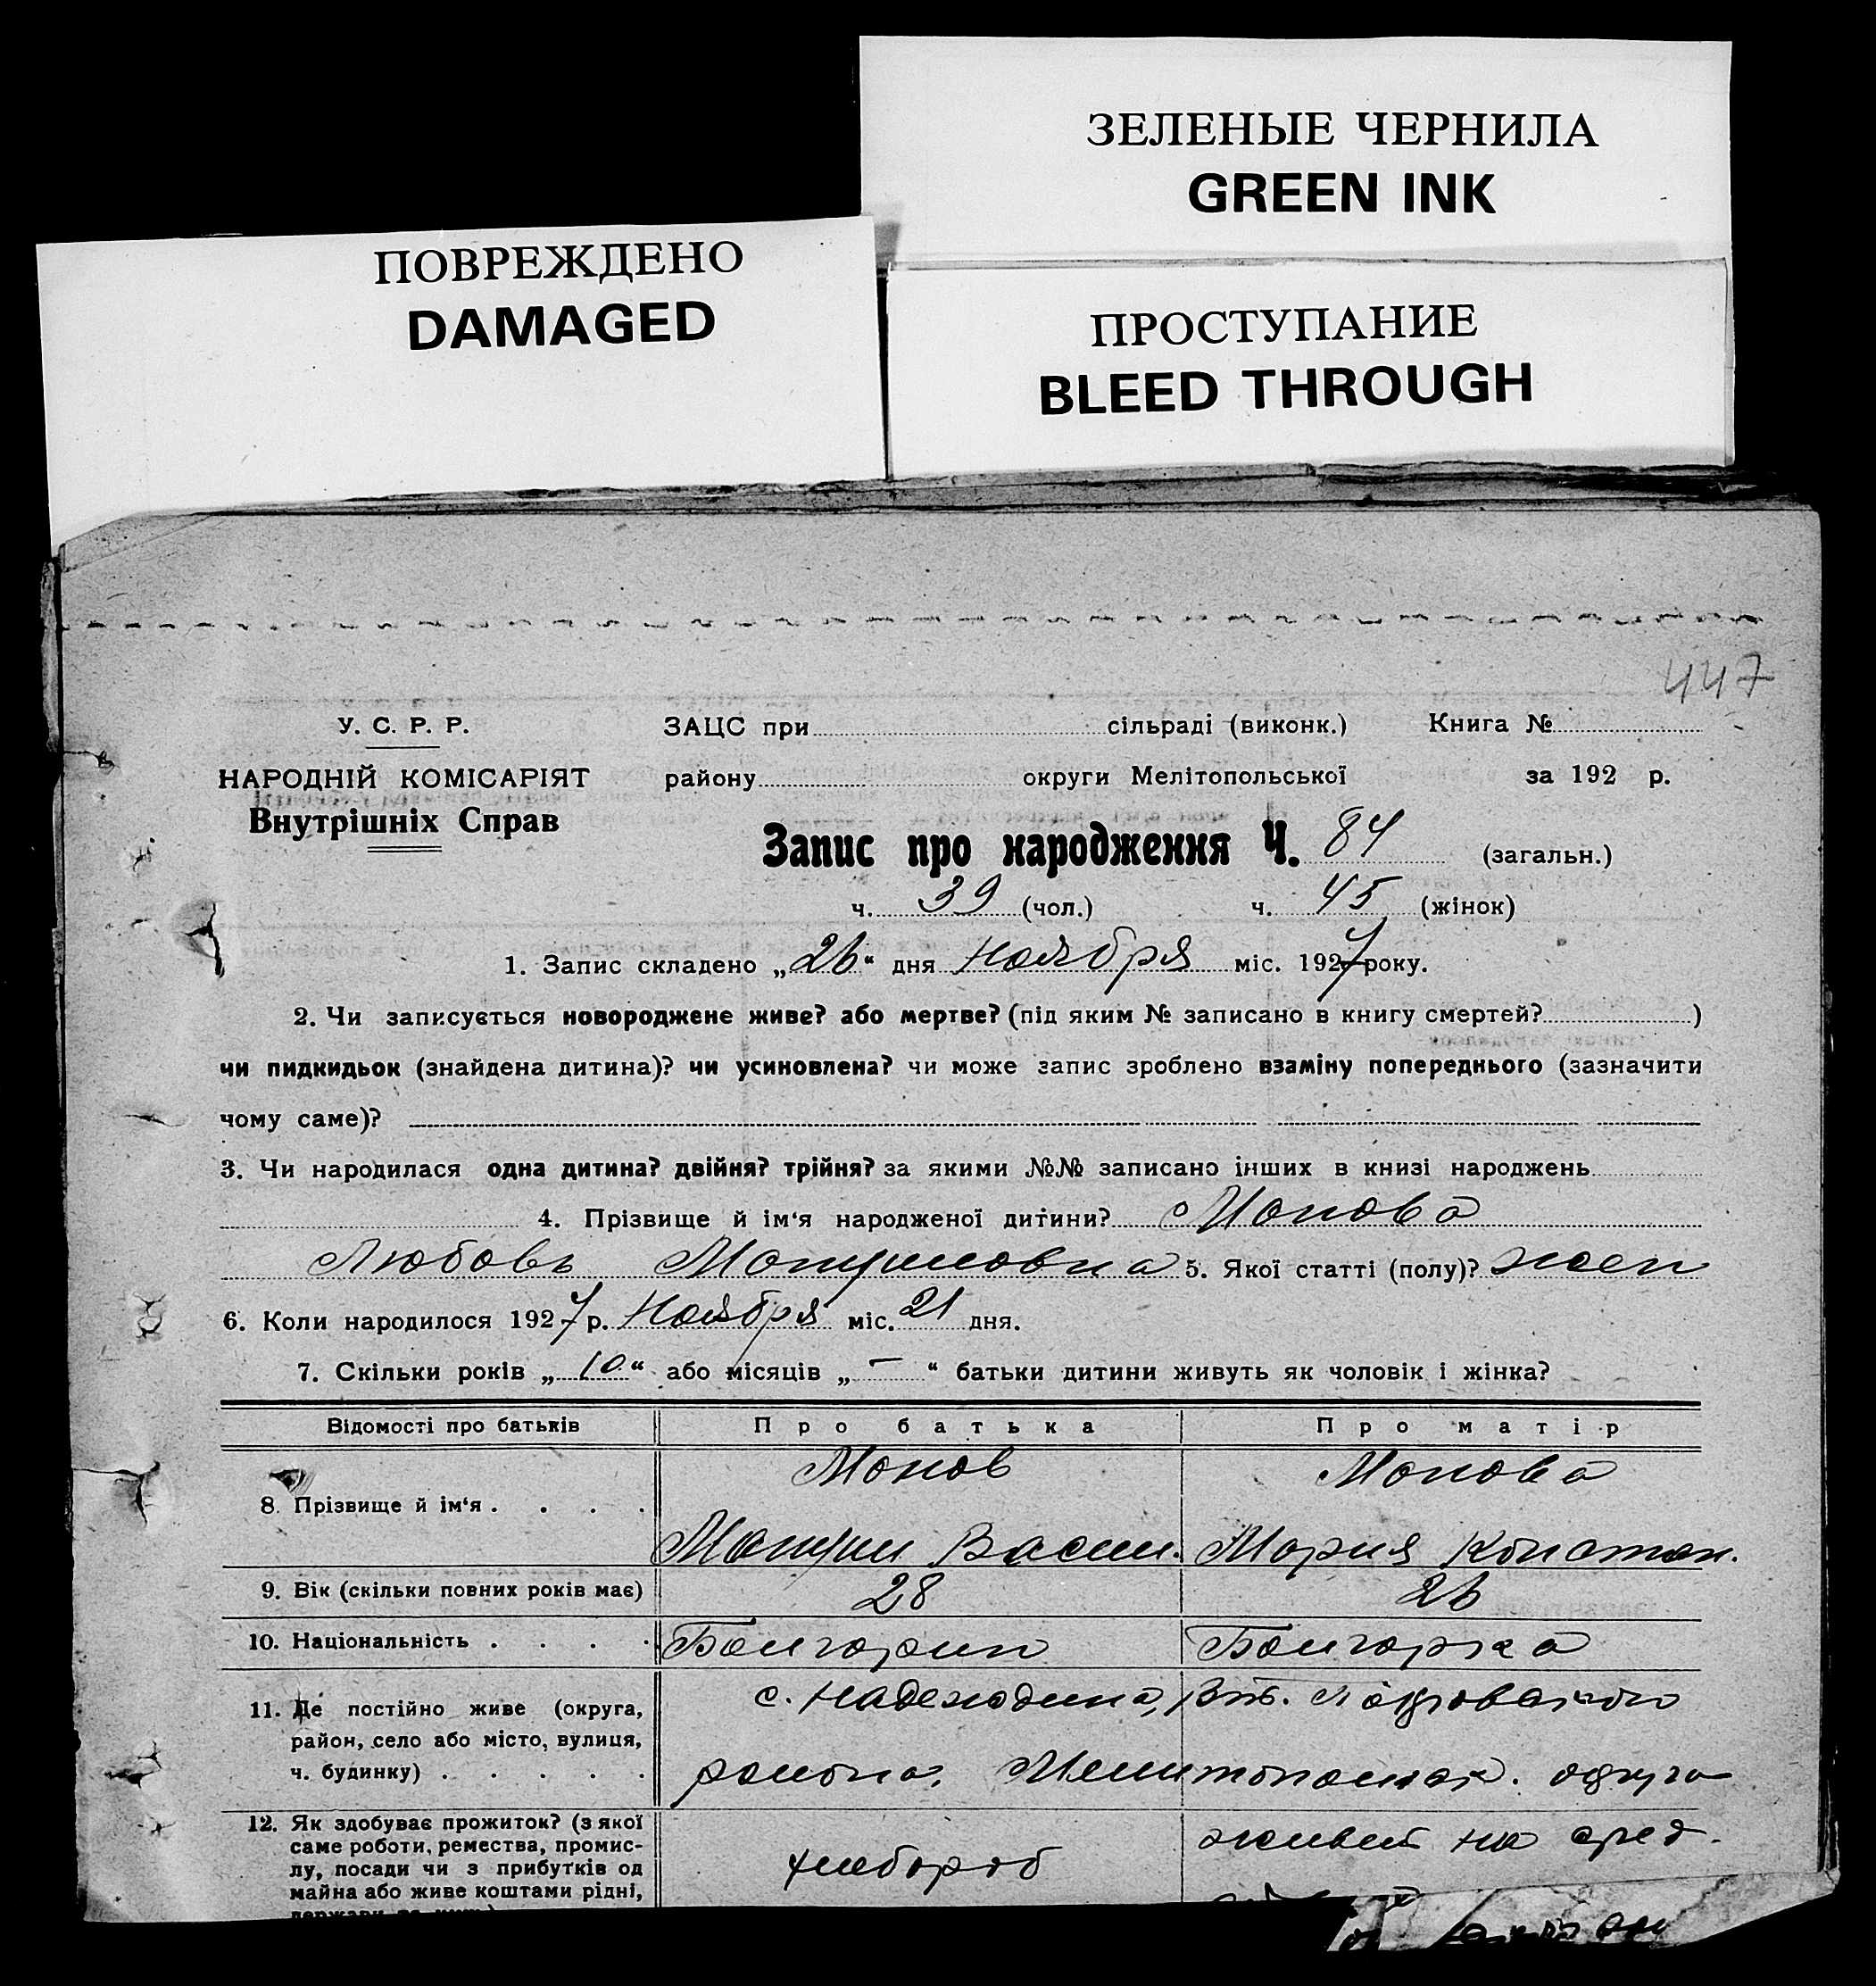 ЗЕЛЕНЫЕ ЧЕРНИЛА
GREEN INK
ПОВРЕЖДЕНО
DAMAGED
ПРОСТУПАНИЕ
BLEED THROUGH
447
У. С. Р. Р.
НАРОДНІЙ КОМІСАРІЯТ
Внутрішніх Справ
ЗАЦС при сільраді (виконк.) Книга №
району округи Мелітопольської за 192 р.
Запис про народження Ч. 84 (загальн.)
ч. 39 (чол.) ч. 45 (жінок)
1. Запис складено „26“ дня Ноября міс. 1927 року.
2. Чи записується новороджене живе? або мертве? (під яким № записано в книгу смертей? )
чи пидкидьок (знайдена дитина)? чи усиновлена? чи може запис зроблено взаміну попереднього (зазначити
чому саме)?
3. Чи народилася одна дитина? двійня? трійня? за якими №№ записано інших в книзі народжень
4. Прізвище й ім‘я народженої дитини? Монова
Любовь 5. Якої статті (полу)? жен
6. Коли народилося 1927 р. Ноября міс. 21 дня.
7. Скільки років „10“ або місяців „–“ батьки дитини живуть як чоловік і жінка?
Відомості про батьків Про батька Про матір
8. Прізвище й ім‘я . . . . Монов Монова
Васил. Мария Констан.
9. Вік (скільки повних років має) 28 26
10. Національність . . . . Болгарин Болгарка
11. Де постійно живе (округа,
район, село або місто, вулиця,
ч. будинку) . . . . .
с. Надеждина,
района, Мелитопольск. округа
12. Як здобуває прожиток? (з якої
саме роботи, ремества, промис-
лу, посади чи з прибутків од
майна або живе коштами рідні,
хлебороб
живет на сред.